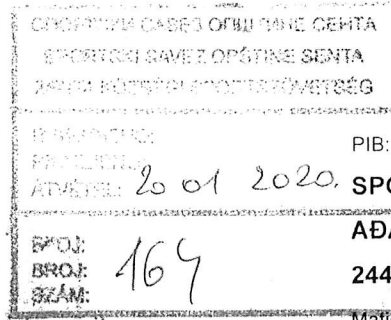 СПОРТСКИ САВЕЗ ОПШТИНЕ СЕНТА
SPORTSKI SAVEZ OPŠTINE SENTA
ZENTA KÖZSÉGI SPORTSZÖVETSÉG
PIB:
ÁTVÉTEL: 20 01 2020.
SPO
БРОЈ:
BROJ:
SZÁM:
164
AĐA
244
Mati